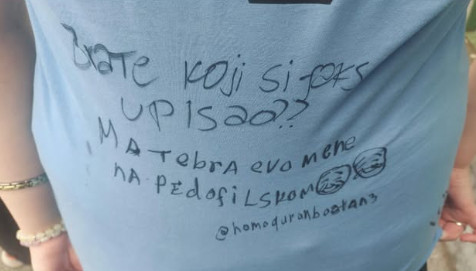 Brate koji si faks
upisao??
Ma tebra evo mene
na Pedofilskom